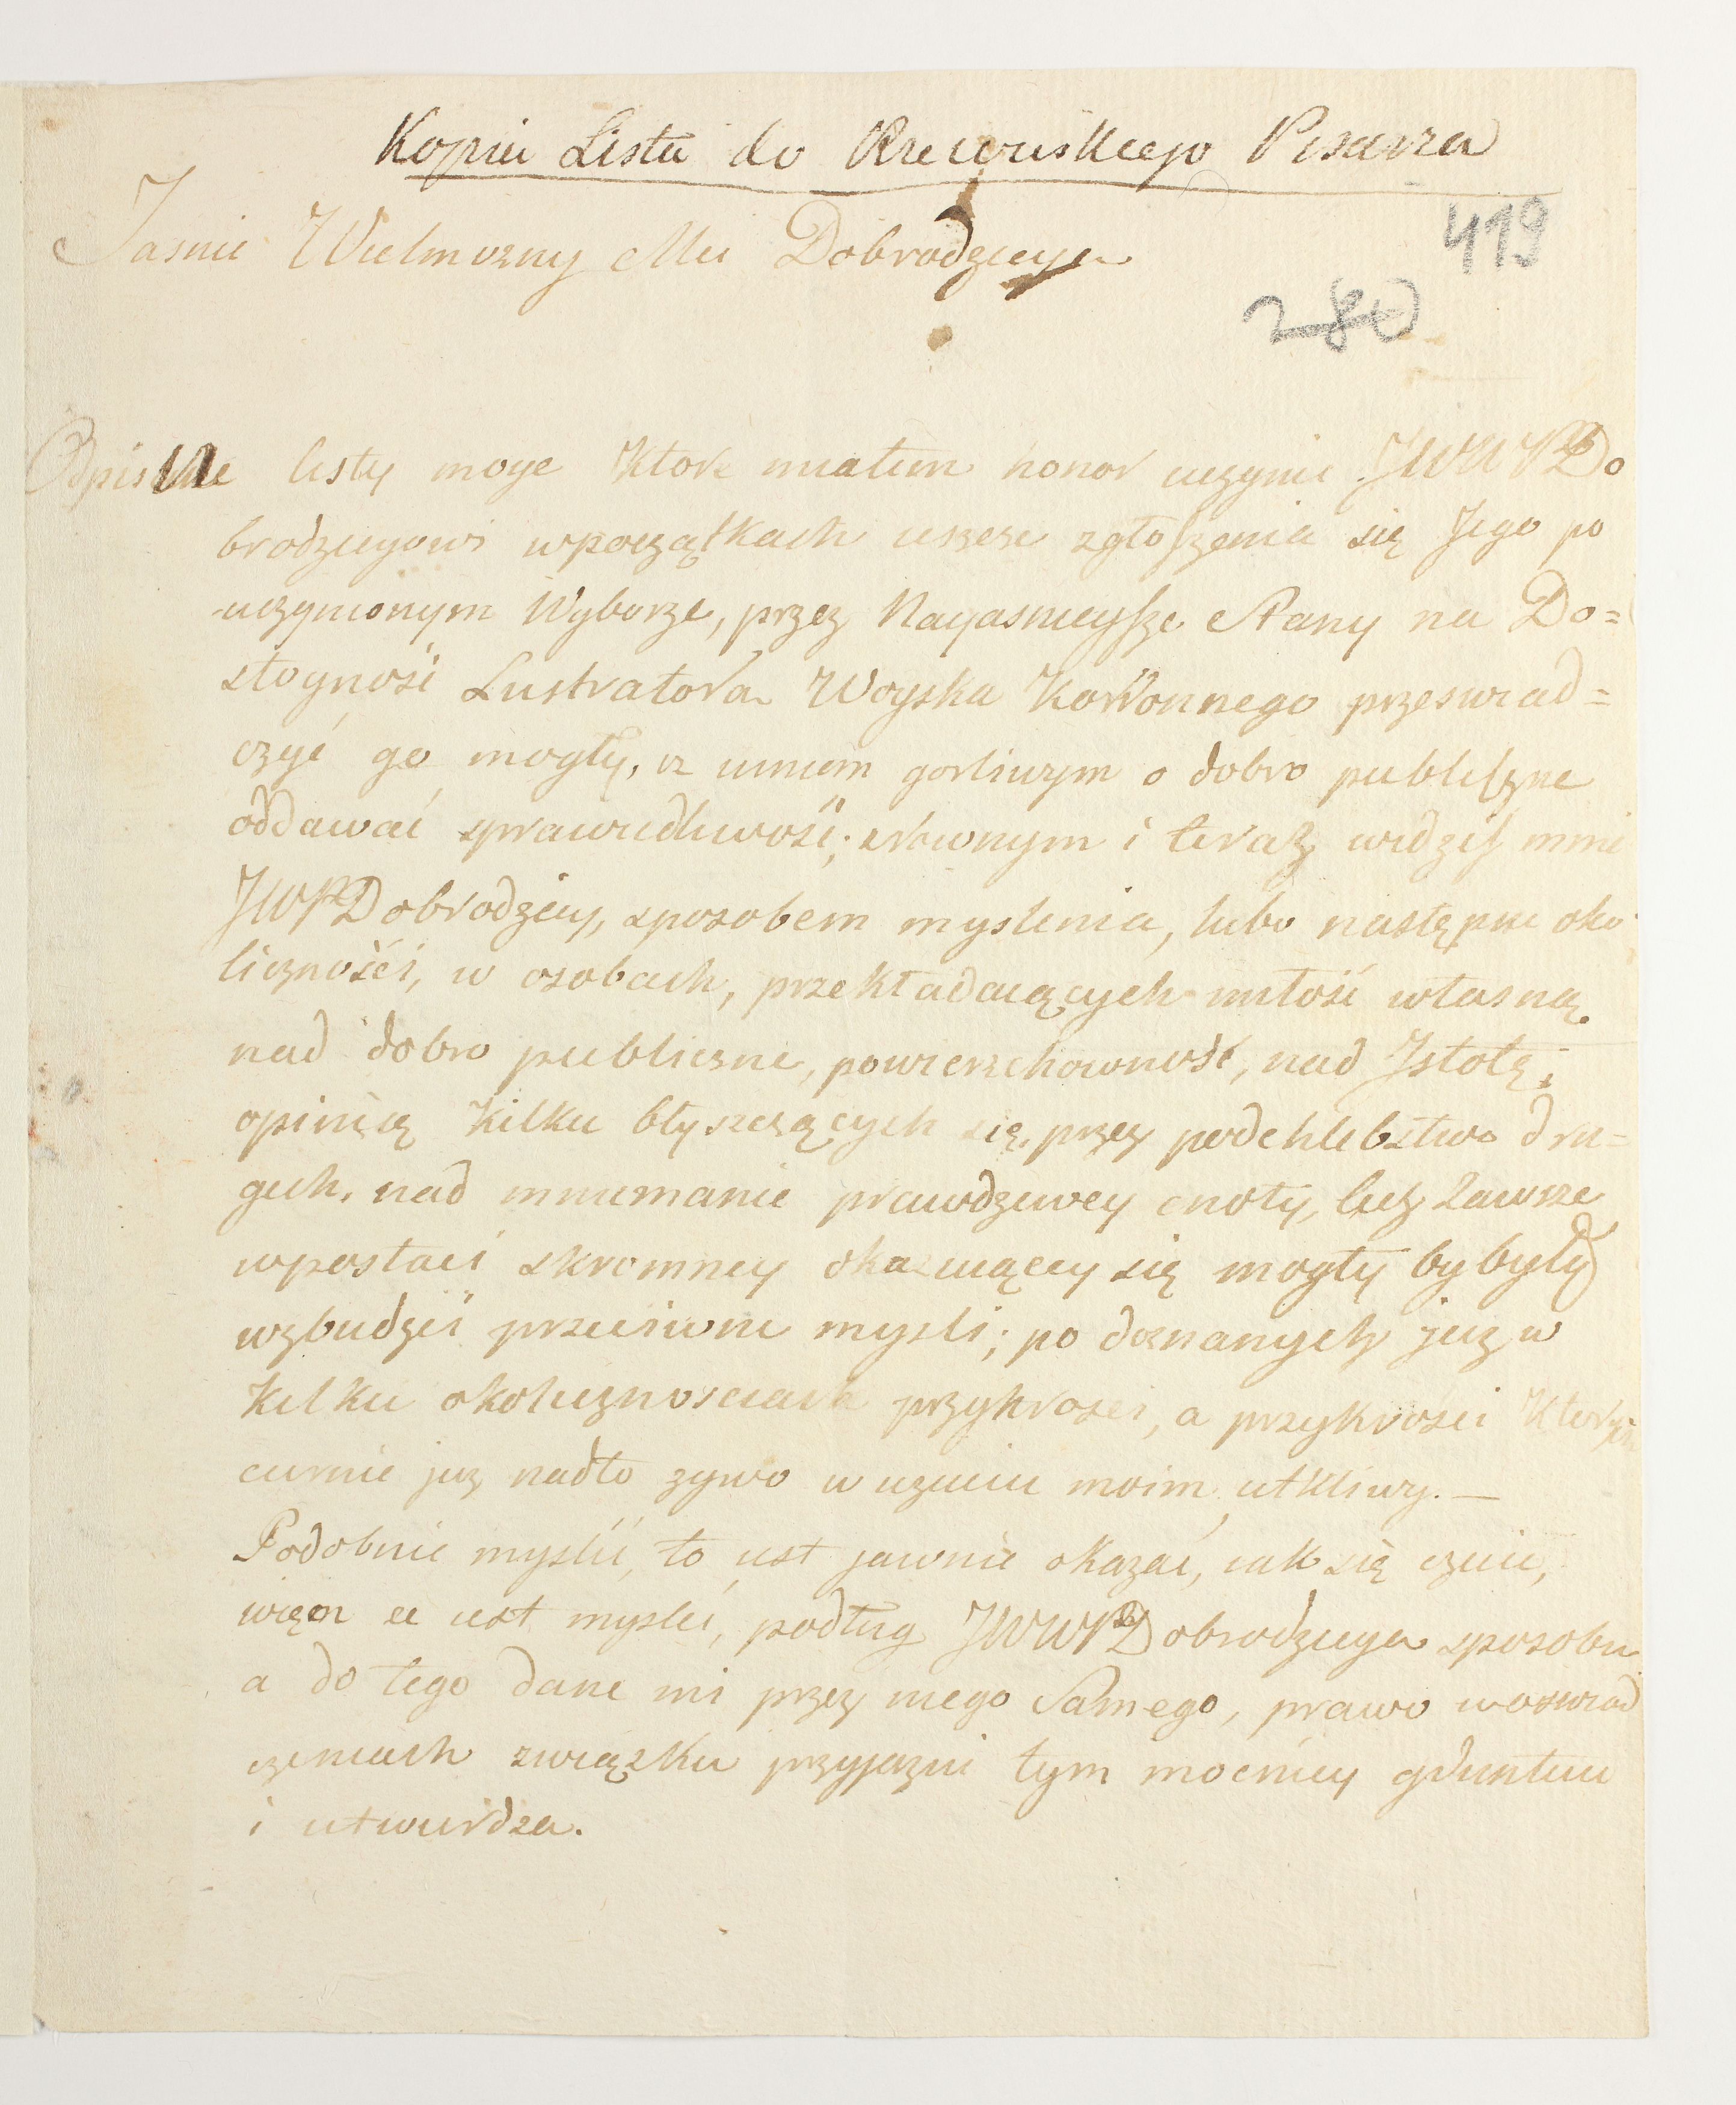 Kopia Listu do Rzewuskiego Pisarza
Jasnie Wielmozny Mci Dobrodzieju
419
280
Odpisne listy moye ktore miałem honor uczynic JWW PDo
brodzieyowi wpoczątkach ieszcze zgłoszenia się Jego po
uczynionym Wyborze, przez Nayasnieysze Stany na Do=
stoyność Lustratora Woyska Korronnego przeswiad=
czyć go mogły, iz umiem gorliwym o dobro publiczne
oddawać sprawiedliwość; rownym i teraz widzisz mnie
JWPDobrodziey, sposobem myslenia, lubo następne oko
liczności, w osobach, przekładaiących miłość własną
nad dobro publiczne, powierzchowność, nad Jstotę;
opinią kilku błyszczących się, przez podchlebstwo dru=
gich, nad mniemanie prawdziwey cnoty, lecz zawsze
wpostaci skromney okazuiącey się mogły by były
wzbudzić przeciwne mysli; po doznanych juz w
kilku okolicznosciach przykrosci, a przykrosci
juz nadto zywo w uczuciu moim utkliwy. —
Podobnie myslić, to iest jawnie okazać, iak się czuie,
więc iest myslić, podług JWWPDobrodzieya sposobu
a do tego dane mi przez niego Samego, prawo woswiad
czeniach związku przyjazni tym mocniey gruntuie
i utwierdza.